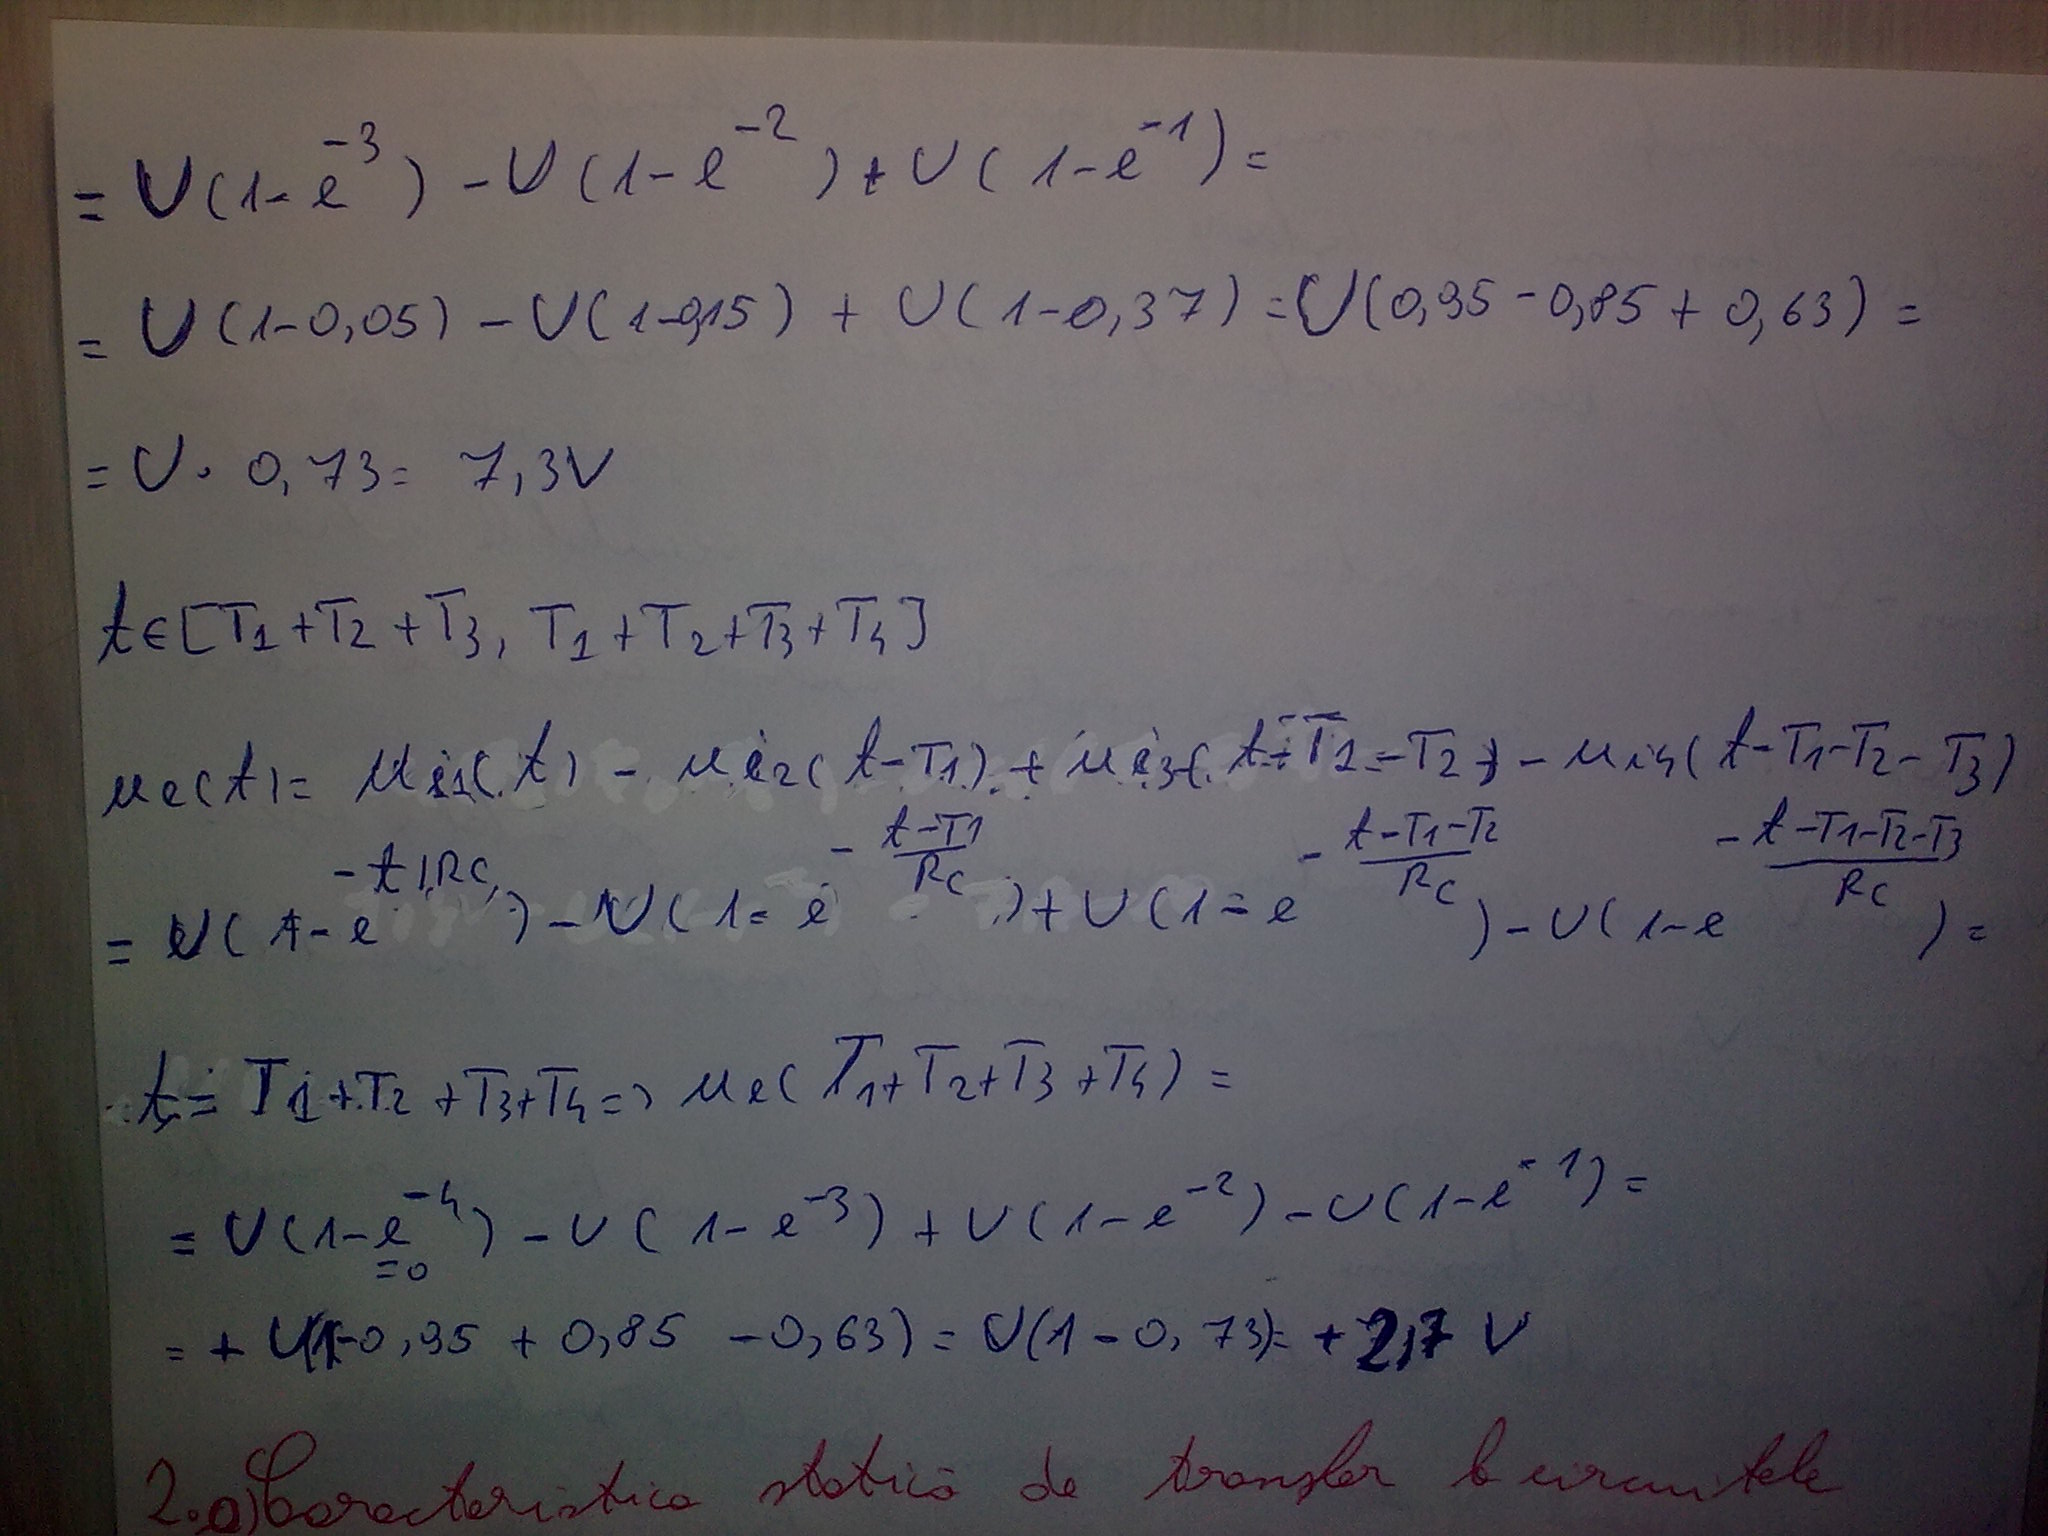 = U(1-e^-3) - U(1-e^-2) + U(1-e^-1) =
= U(1-0,05) - U(1-0,15) + U(1-0,37) = U(0,95-0,85+0,63) =
= U· 0,73 = 7,3V
t∈[T1+T2+T3, T1+T2+T3+T4]
ue(t) = ui1(t) - ui2(t-T1) + ui3(t-T1-T2) - ui4(t-T1-T2-T3)
= U(1-e^-t/RC) - U(1-e^-(t-T1)/RC) + U(1-e^-(t-T1-T2)/RC) - U(1-e^-(t-T1-T2-T3)/RC) =
t = T1+T2+T3+T4 => ue(T1+T2+T3+T4) =
= U(1-e^-4) - U(1-e^-3) + U(1-e^-2) - U(1-e^-1) =
=0
= + U(1-0,95 + 0,85 - 0,63) = U(1-0,73) = + 2,7 V
2.a) Caracteristica statică de transfer la circuitele